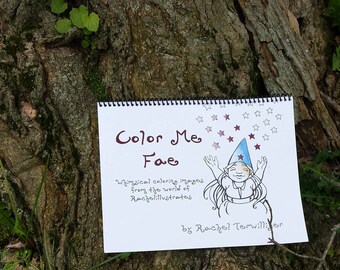 Color Me
Fae
Whimsical coloring images
from the world of
Rachelillustrates
by Rachel Terwilliger